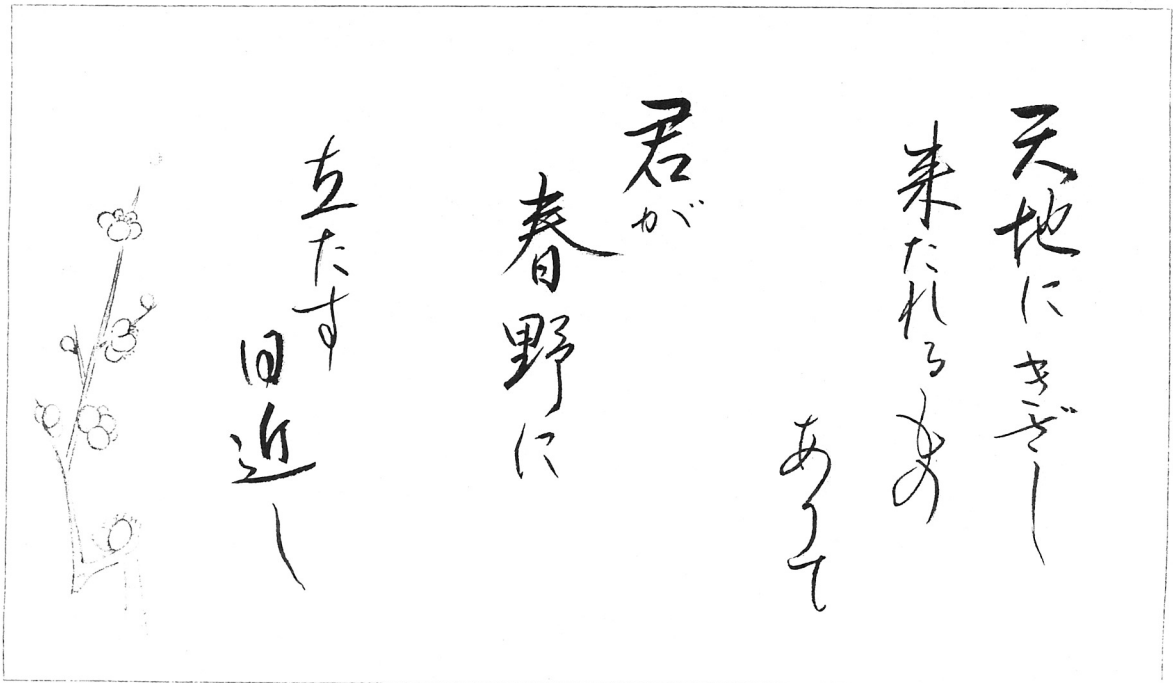 天地にきざし
来たれるもの
ありて
君が
春野に
立たす
日近し